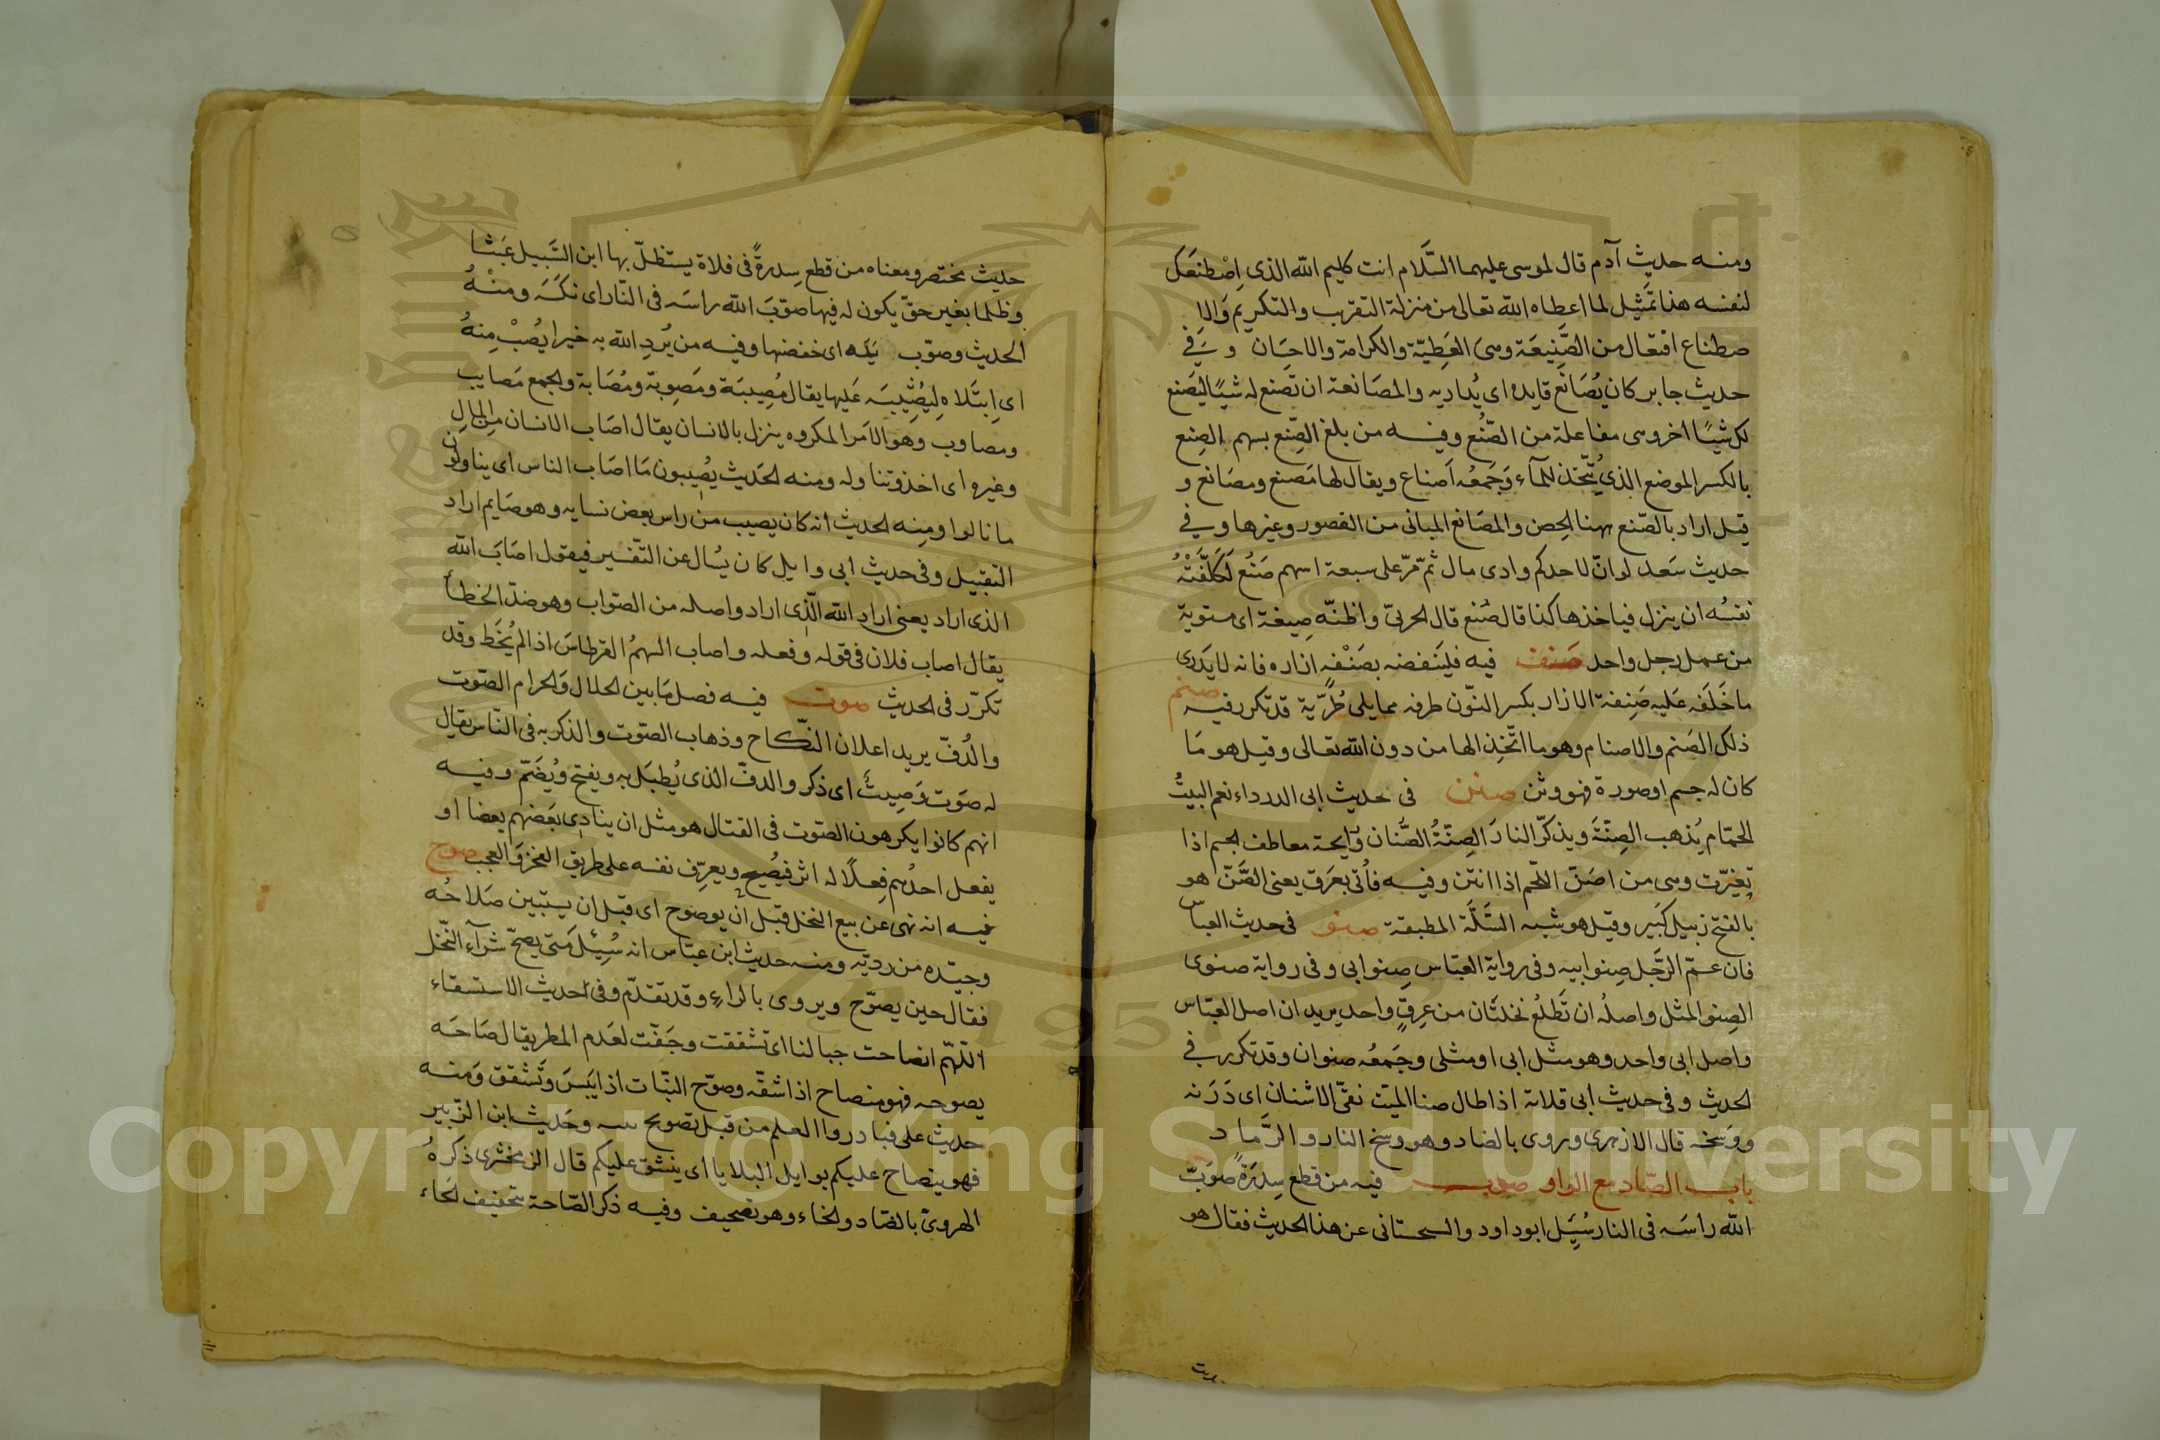 ومنه حديث آدم قال لموسى عليهما السَّلام انت كليم الله الذى اِصْطنعَك
لنفسه هذا تمثيل لما اعطاه الله تعالى من منزلة التقريب والتكريم وَالا
صطناع افتعال من الصَّنِيعَة وهى العَطِيّة والكرامة والاحسَان وفي
حديث جابر كان يُصَانع قايده اى يُداريه والمصَانعة ان تصنع له شيئًا ليَصنع
لك شيئًا اخر وهى مفاعلة من الصُّنْع وفيه من بلغ الصِّنع بسهم الصِنع
بالكسر الموضع الذي يُتّخذ للمآء وَجَمعُه اَصناع ويقال لها مَصنع ومصَانع و
قيل اراد بالصّنع ههنا الحِصن والمصَانع المبانى من القصور وغيرها وفي
حديث سَعد لو انّ لاحدكم وادى مال ثمّ مرّ على سبعة اسهم صَنُع لَكَلّفَتْهُ
نفسُه ان ينزل فياخذها كذا قال صُنع قال الحربىّ واظنّه صِيغة اى مستوية
من عمل رجل واحد صَنف فيه فليَنفضه بصَنْفِه ازاره فانه لا يَدرى
ما خَلَفه عَليه صَنِفة الازار بكسر النّون طرفه مما يلى طُرّية صنم قد تكرر فيه
ذلك الصَنم والاصنام وهو ما اتّخِذ الها من دون الله تعالى وقيل هو مَا
كان له جسم او صورة فهو وثن صنن فى حديث ابى الدرداء نعم البيتُ
الحمّام يُذهب الصِنّةَ ويذكّر النارَ الصِنّةُ الصُّنان ورَايحة معاطف الجسم اذا
تغيّرت وهى من اصَنّ اللحم اذا انتن وفيه فاُتى بعَرَق يعنى الصَّنّ هو
بالفتح زبيل كَبَير وقيل هو شبه السَّلّة المطبقة صنو فى حديث العبّاس
فان عمّ الرّجل صِنو ابيه وفى رواية العبّاس صِنو ابى وفى رواية صنوى
الصِنو المثل واصلُه ان تَطلعُ نخلتَان من عِرقٍ واحد يريد ان اصل العبّاس
واصل ابى واحد وهو مثل ابى او مثلى وجَمعُه صنوان وقد تكرر في
الحديث وفى حديث ابى قلابة اذا طال صنا الميّت نقّى الاشنان اى دَرَنه
ووَسَخه قال الازهرى وروى بالضاد وهو وسخ النار والرَّماد
باب الصّاد مع الواو صوب فيه من قطع سِدرَةً صَوّبَ
الله راسَه فى النار سُئِل ابو داود والسجستانى عن هذا الحديث فقال هو
حديث مختصر ومعناه من قطع سِدرةً فى فلاة يستظلّ بها ابن السَّبيل عَبَثا
وظلما بغير حقّ يكون له فيها صوّبَ الله راسَه فى النّار اى نكَسَه ومنْهُ
الحديث وصوّب يَدَه اى خفضها وفيه من يُرِدِ الله به خيرا يُصِبْ مِنهُ
اى اِبتَلاه لِيُثِيبَه عَليها يقال مُصِيبَة ومَصوبة ومُصَابة والجمع مَصايب
ومصاوب وهو الامَر المكروه ينزل بالانسان يقال اصَاب الانسان مِن المالِ
وغيره اى اخذ وتناوله ومنه الحَديث يصُيبون مَا اصَاب الناس اى يناولون
ما نالوا ومِنه الحديث انه كان يصيب من راس بعض نسايه وهو صَايم اراد
التقبيل وفى حديث ابى وايل كان يُسْال عن التّفسير فيقول اصَابَ الله
الذى اراد يعنى اراد الله الّذى اراد واصله من الصّواب وهو ضدّ الخطأ
يقال اصاب فلان فى قوله وفعله واصاب السهمُ القرطاسَ اذا لم يُخَط وقد
تكرّر فى الحديث صوت فيه فصل مَا بين الحلال وَالحرام الصّوت
والدُفّ يريد اعلان النّكاح وذهاب الصّوت والذكر به فى النّاس يقال
له صَوت وَصِيتٌ اى ذكر والدفّ الذى يُطبَل به ويفتح ويُضَمّ وفيه
انهم كانوا يكرهون الصّوت فى القتال هو مثل ان ينادى بَعَضهم بعضا او
يفعل احدُهم فِعلًا له اثر فيُصيح ويعرّف نفسه على طريق الفخر وَالعجب صوح
فيه انه نهى عن بيع النخل قبل ان يوصوح اى قبل ان يستبين صَلاحُه
وجيّده من رديّه ومنه حديث ابن عبّاس انه سُئِل مَتى يصحّ شرآء النّخل
فقال حين يصوّح ويروى بالراء وقد تقدّم وفى احديث الاستسقاء
اللّهمّ انصاحت جبالنا اى تشققت وجَفّت لعَدم المطر يقال صَاحَه
يصوحه فهو منصاح اذا شقّه وصوّح النبّات اذا يَبَسَ وَتَشقق وَمنه
حديث على فبادروا العلم من قبل تصويح نبته وحَديث ابن الزّبير
فهو ينصاح عليكم بوايل البلايا اى ينشق عليكم قال الزمخشرى ذكرهُ
الهروىّ بالصّاد والخاء وهو تصحيف وفيه ذكر الصّاحة تخفيف الحَاء
Copyright © King Saud University
1957